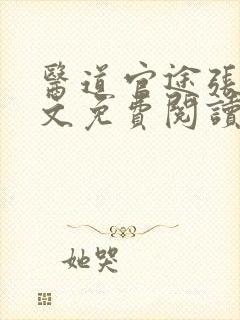 醫道官途張
文免費閱讀
她哭